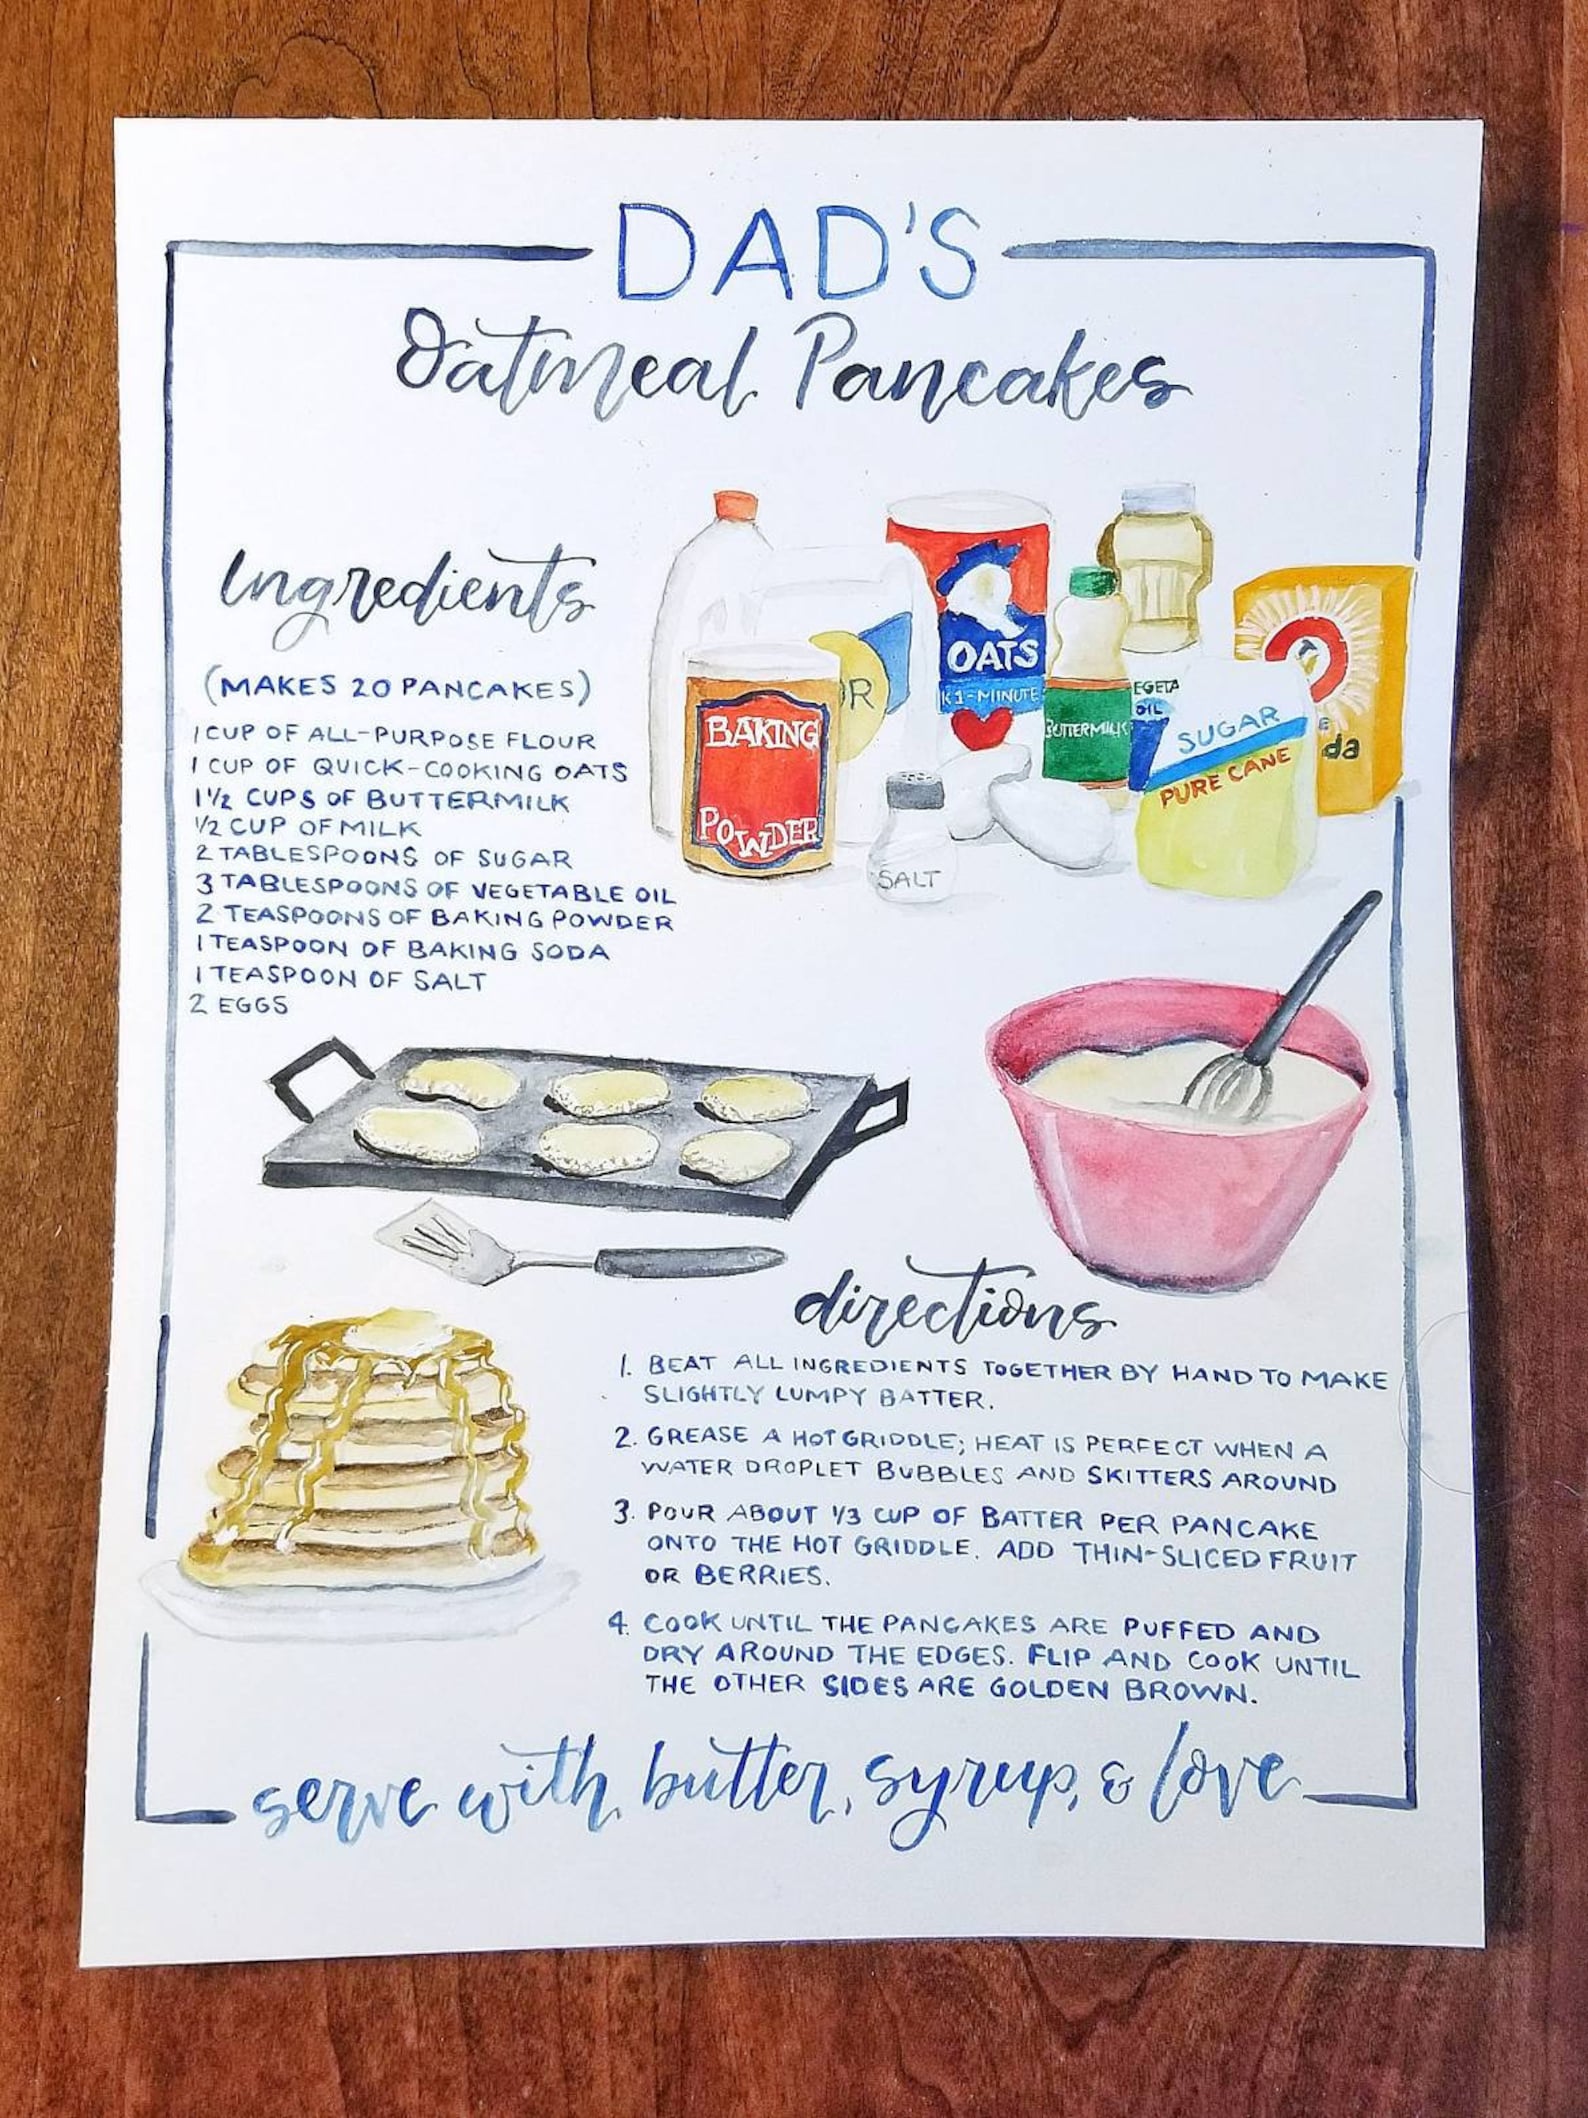 DAD'S
Oatmeal Pancakes
Ingredients
(MAKES 20 PANCAKES)
1 CUP OF ALL-PURPOSE FLOUR
1 CUP OF QUICK-COOKING OATS
1 1/2 CUPS OF BUTTERMILK
1/2 CUP OF MILK
2 TABLESPOONS OF SUGAR
3 TABLESPOONS OF VEGETABLE OIL
2 TEASPOONS OF BAKING POWDER
1 TEASPOON OF BAKING SODA
1 TEASPOON OF SALT
2 EGGS
BAKING
POWDER
OR
OATS
K 1-MINUTE
SALT
BUTTERMILK
EGETA
OIL
SUGAR
PURE CANE
E
da
directions
1. BEAT ALL INGREDIENTS TOGETHER BY HAND TO MAKE
SLIGHTLY LUMPY BATTER.
2. GREASE A HOT GRIDDLE; HEAT IS PERFECT WHEN A
WATER DROPLET BUBBLES AND SKITTERS AROUND
3. POUR ABOUT 1/3 CUP OF BATTER PER PANCAKE
ONTO THE HOT GRIDDLE. ADD THIN-SLICED FRUIT
OR BERRIES.
4. COOK UNTIL THE PANCAKES ARE PUFFED AND
DRY AROUND THE EDGES. FLIP AND COOK UNTIL
THE OTHER SIDES ARE GOLDEN BROWN.
serve with butter, syrup, & love